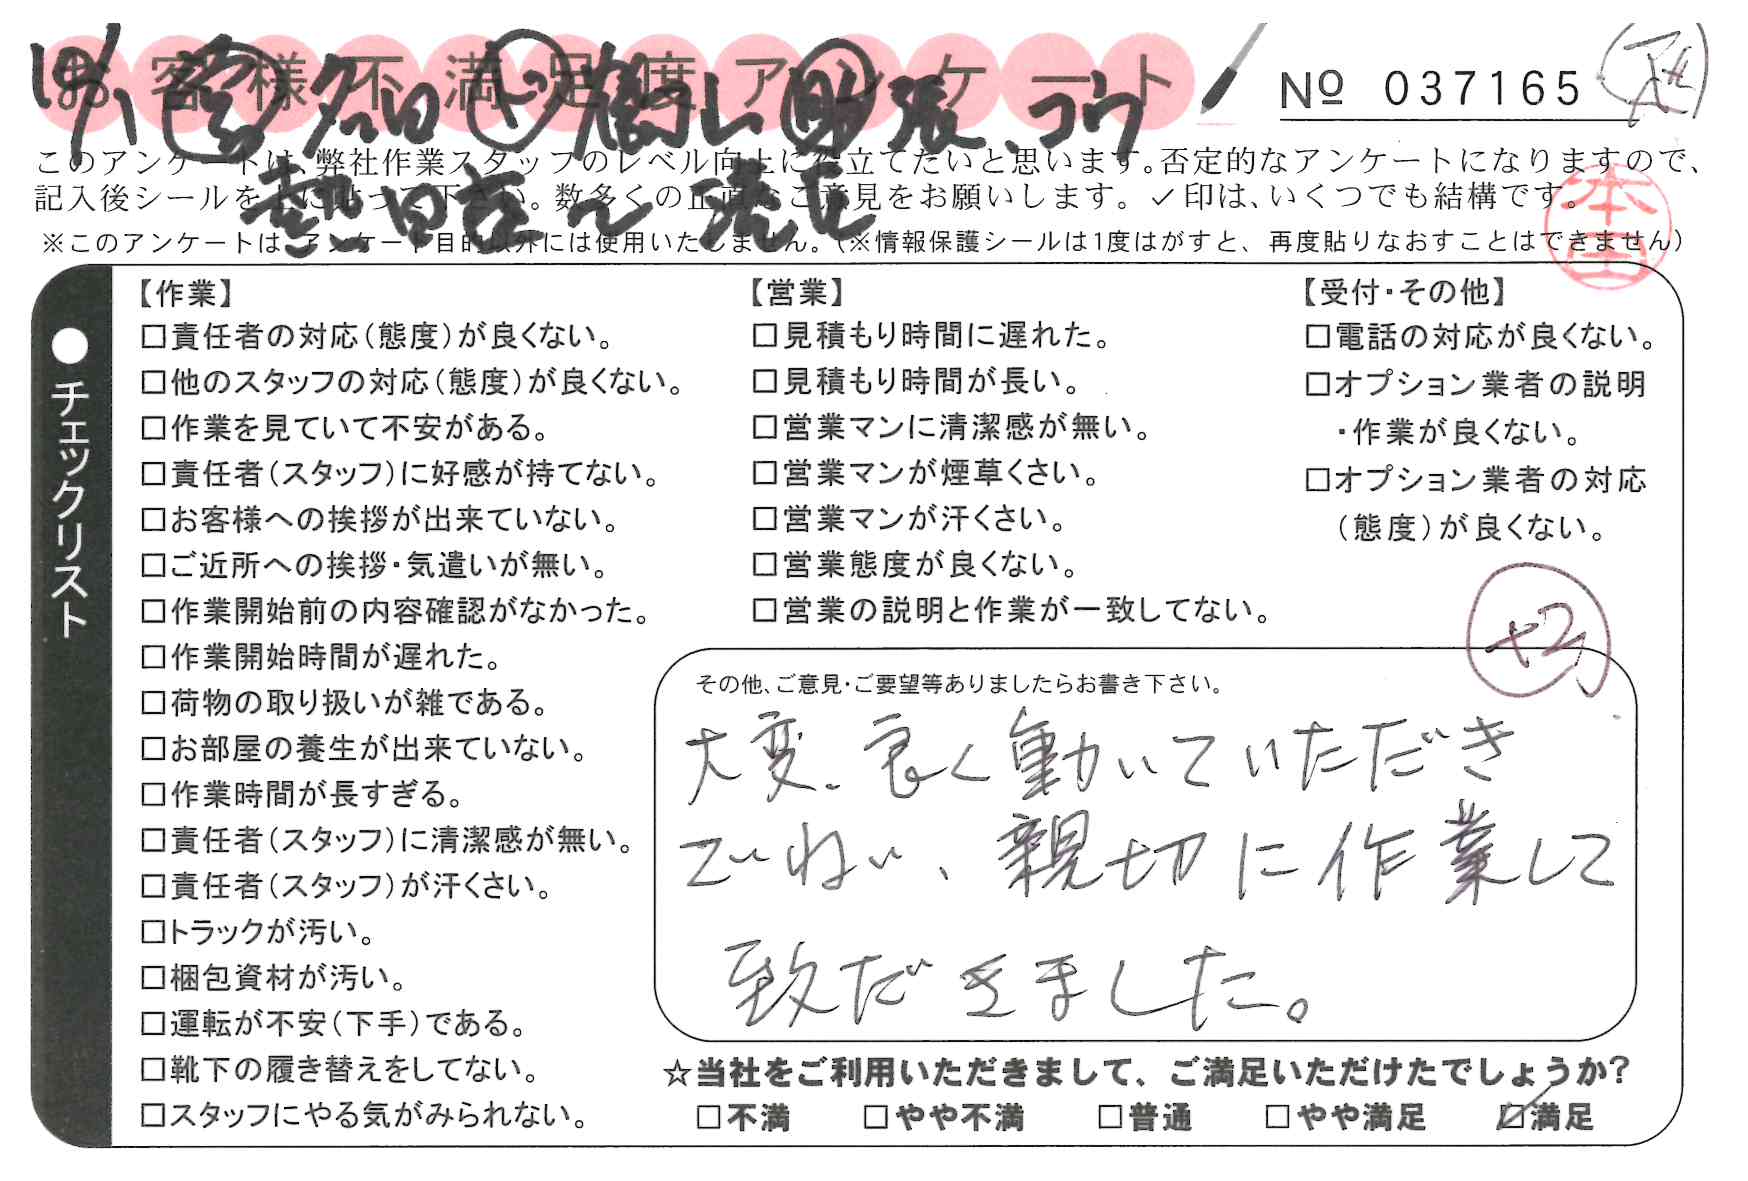 お客様不満足度アンケート
№ 037165
このアンケートは、弊社作業スタッフのレベル向上に役立てたいと思います。否定的なアンケートになりますので、
記入後シールを上に貼って下さい。数多くの正直なご意見をお願いします。✓印は、いくつでも結構です。
※このアンケートは、アンケート目的以外には使用いたしません。(※情報保護シールは1度はがすと、再度貼りなおすことはできません)
本田
●チェックリスト
【作業】
□責任者の対応(態度)が良くない。
□他のスタッフの対応(態度)が良くない。
□作業を見ていて不安がある。
□責任者(スタッフ)に好感が持てない。
□お客様への挨拶が出来ていない。
□ご近所への挨拶・気遣いが無い。
□作業開始前の内容確認がなかった。
□作業開始時間が遅れた。
□荷物の取り扱いが雑である。
□お部屋の養生が出来ていない。
□作業時間が長すぎる。
□責任者(スタッフ)に清潔感が無い。
□責任者(スタッフ)が汗くさい。
□トラックが汚い。
□梱包資材が汚い。
□運転が不安(下手)である。
□靴下の履き替えをしてない。
□スタッフにやる気がみられない。
【営業】
□見積もり時間に遅れた。
□見積もり時間が長い。
□営業マンに清潔感が無い。
□営業マンが煙草くさい。
□営業マンが汗くさい。
□営業態度が良くない。
□営業の説明と作業が一致してない。
【受付・その他】
□電話の対応が良くない。
□オプション業者の説明
・作業が良くない。
□オプション業者の対応
(態度)が良くない。
その他、ご意見・ご要望等ありましたらお書き下さい。
大変、良く動いていただき
ていねい、親切に作業して
致だきました。
☆当社をご利用いただきまして、ご満足いただけたでしょうか?
□不満 □やや不満 □普通 □やや満足 ☑満足